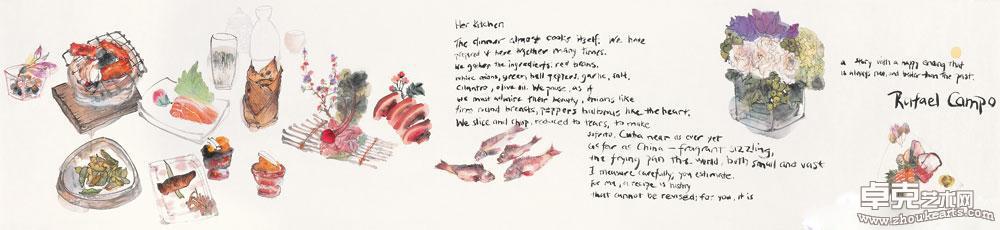 Her Kitchen
The dinner almost cooks itself. We have
prepared it here together many times.
We gather the ingredients: red beans,
white onions, green bell peppers, garlic, salt,
cilantro, olive oil. We pause, as if
we must admire their beauty, onions like
firm round breasts, peppers bulbous like the heart.
We slice and chop, reduced to tears, to make
sofrito, Cuba near as ever yet
as far as China — fragrant sizzling,
the frying pan the world, both small and vast
I measure carefully; you estimate.
For me, a recipe is history
that cannot be revised; for you, it is
a story with a happy ending that
is always new, and better than the past.
Rafael Campo
卓克艺术网
www.zhoukearts.com